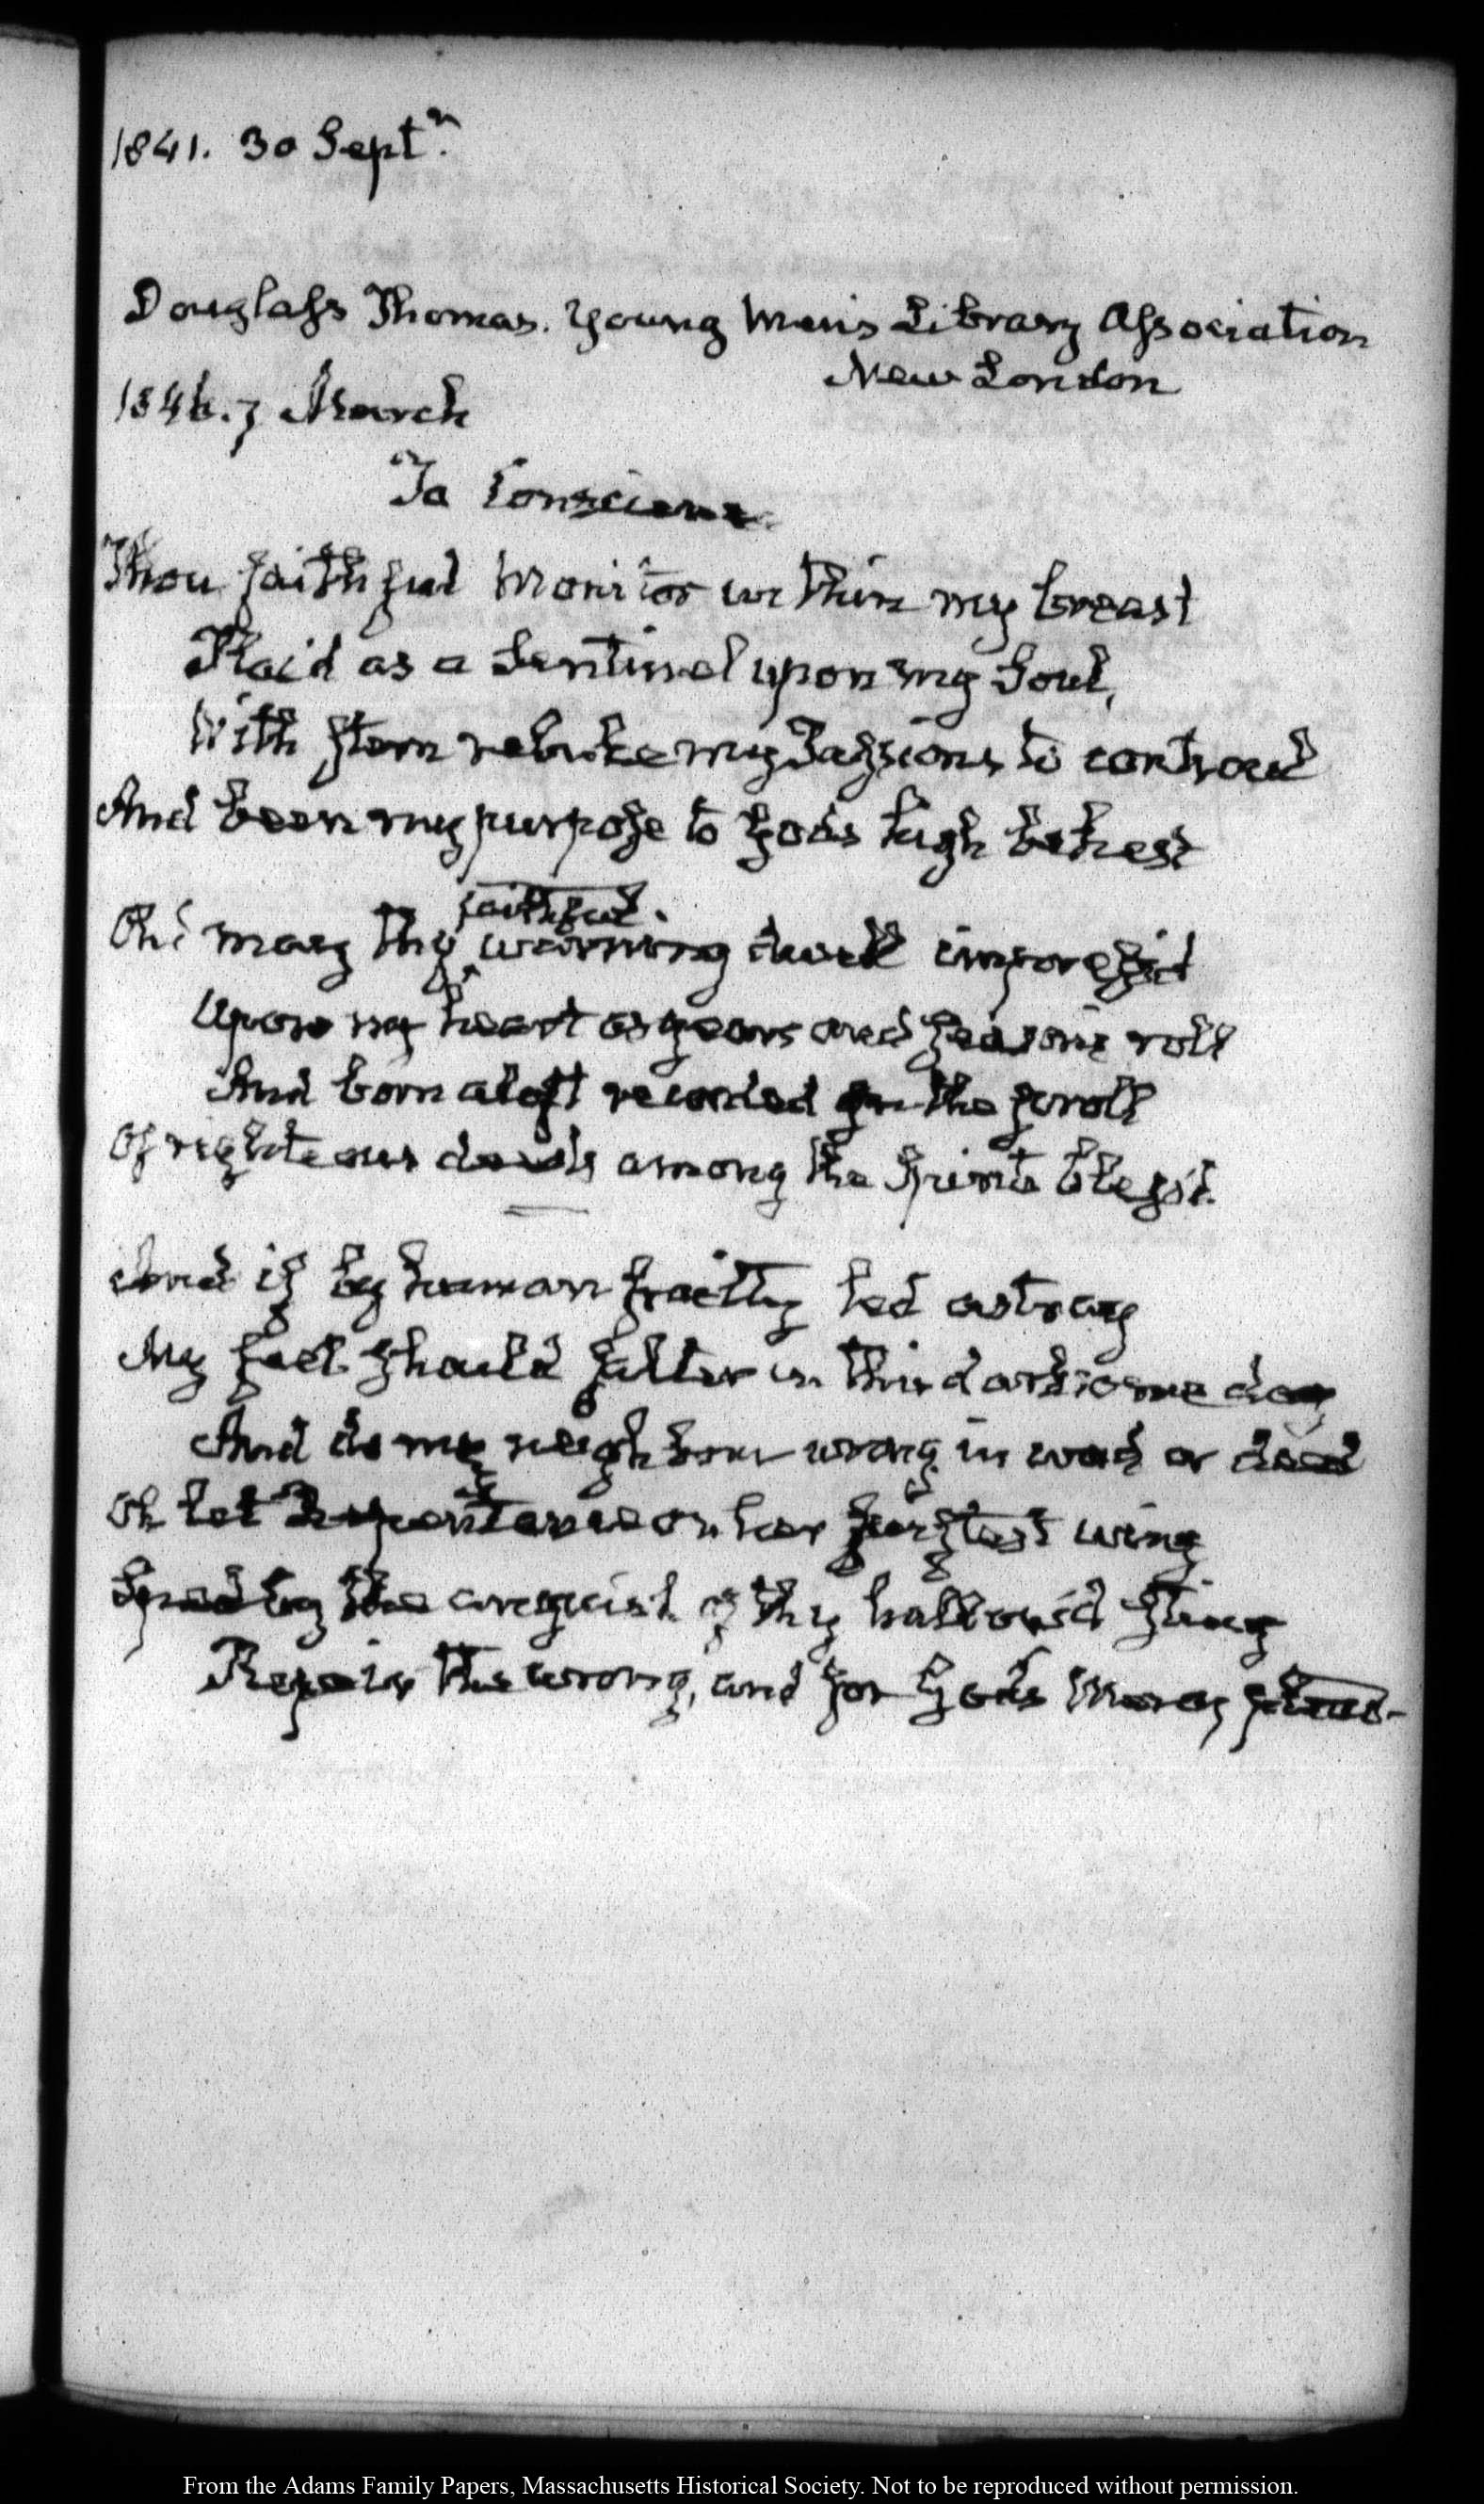 1841. 30 Septr.
Douglass Thomas. Young Men's Library Association
New London
1846. 7 March
To Conscience
Thou faithful Monitor within my breast
Plac'd as a Sentinel upon my Soul,
With stern rebuke my Passions to controul
And my purpose to Gods high behest
faithful
Oh! may thy warning dwell impress'd
Upon my heart as years and Seasons roll
And born aloft recorded on the scroll
Of righteous deeds among the Spirits bless'd.
And if by human frailty led astray
My feet should falter in this darksome day
And do my neighbour wrong in word or deed
Oh let Repentance on her wing
by the anguish of thy hallow'd sting
Repair the wrong, and for Gods Mercy plead.
From the Adams Family Papers, Massachusetts Historical Society. Not to be reproduced without permission.